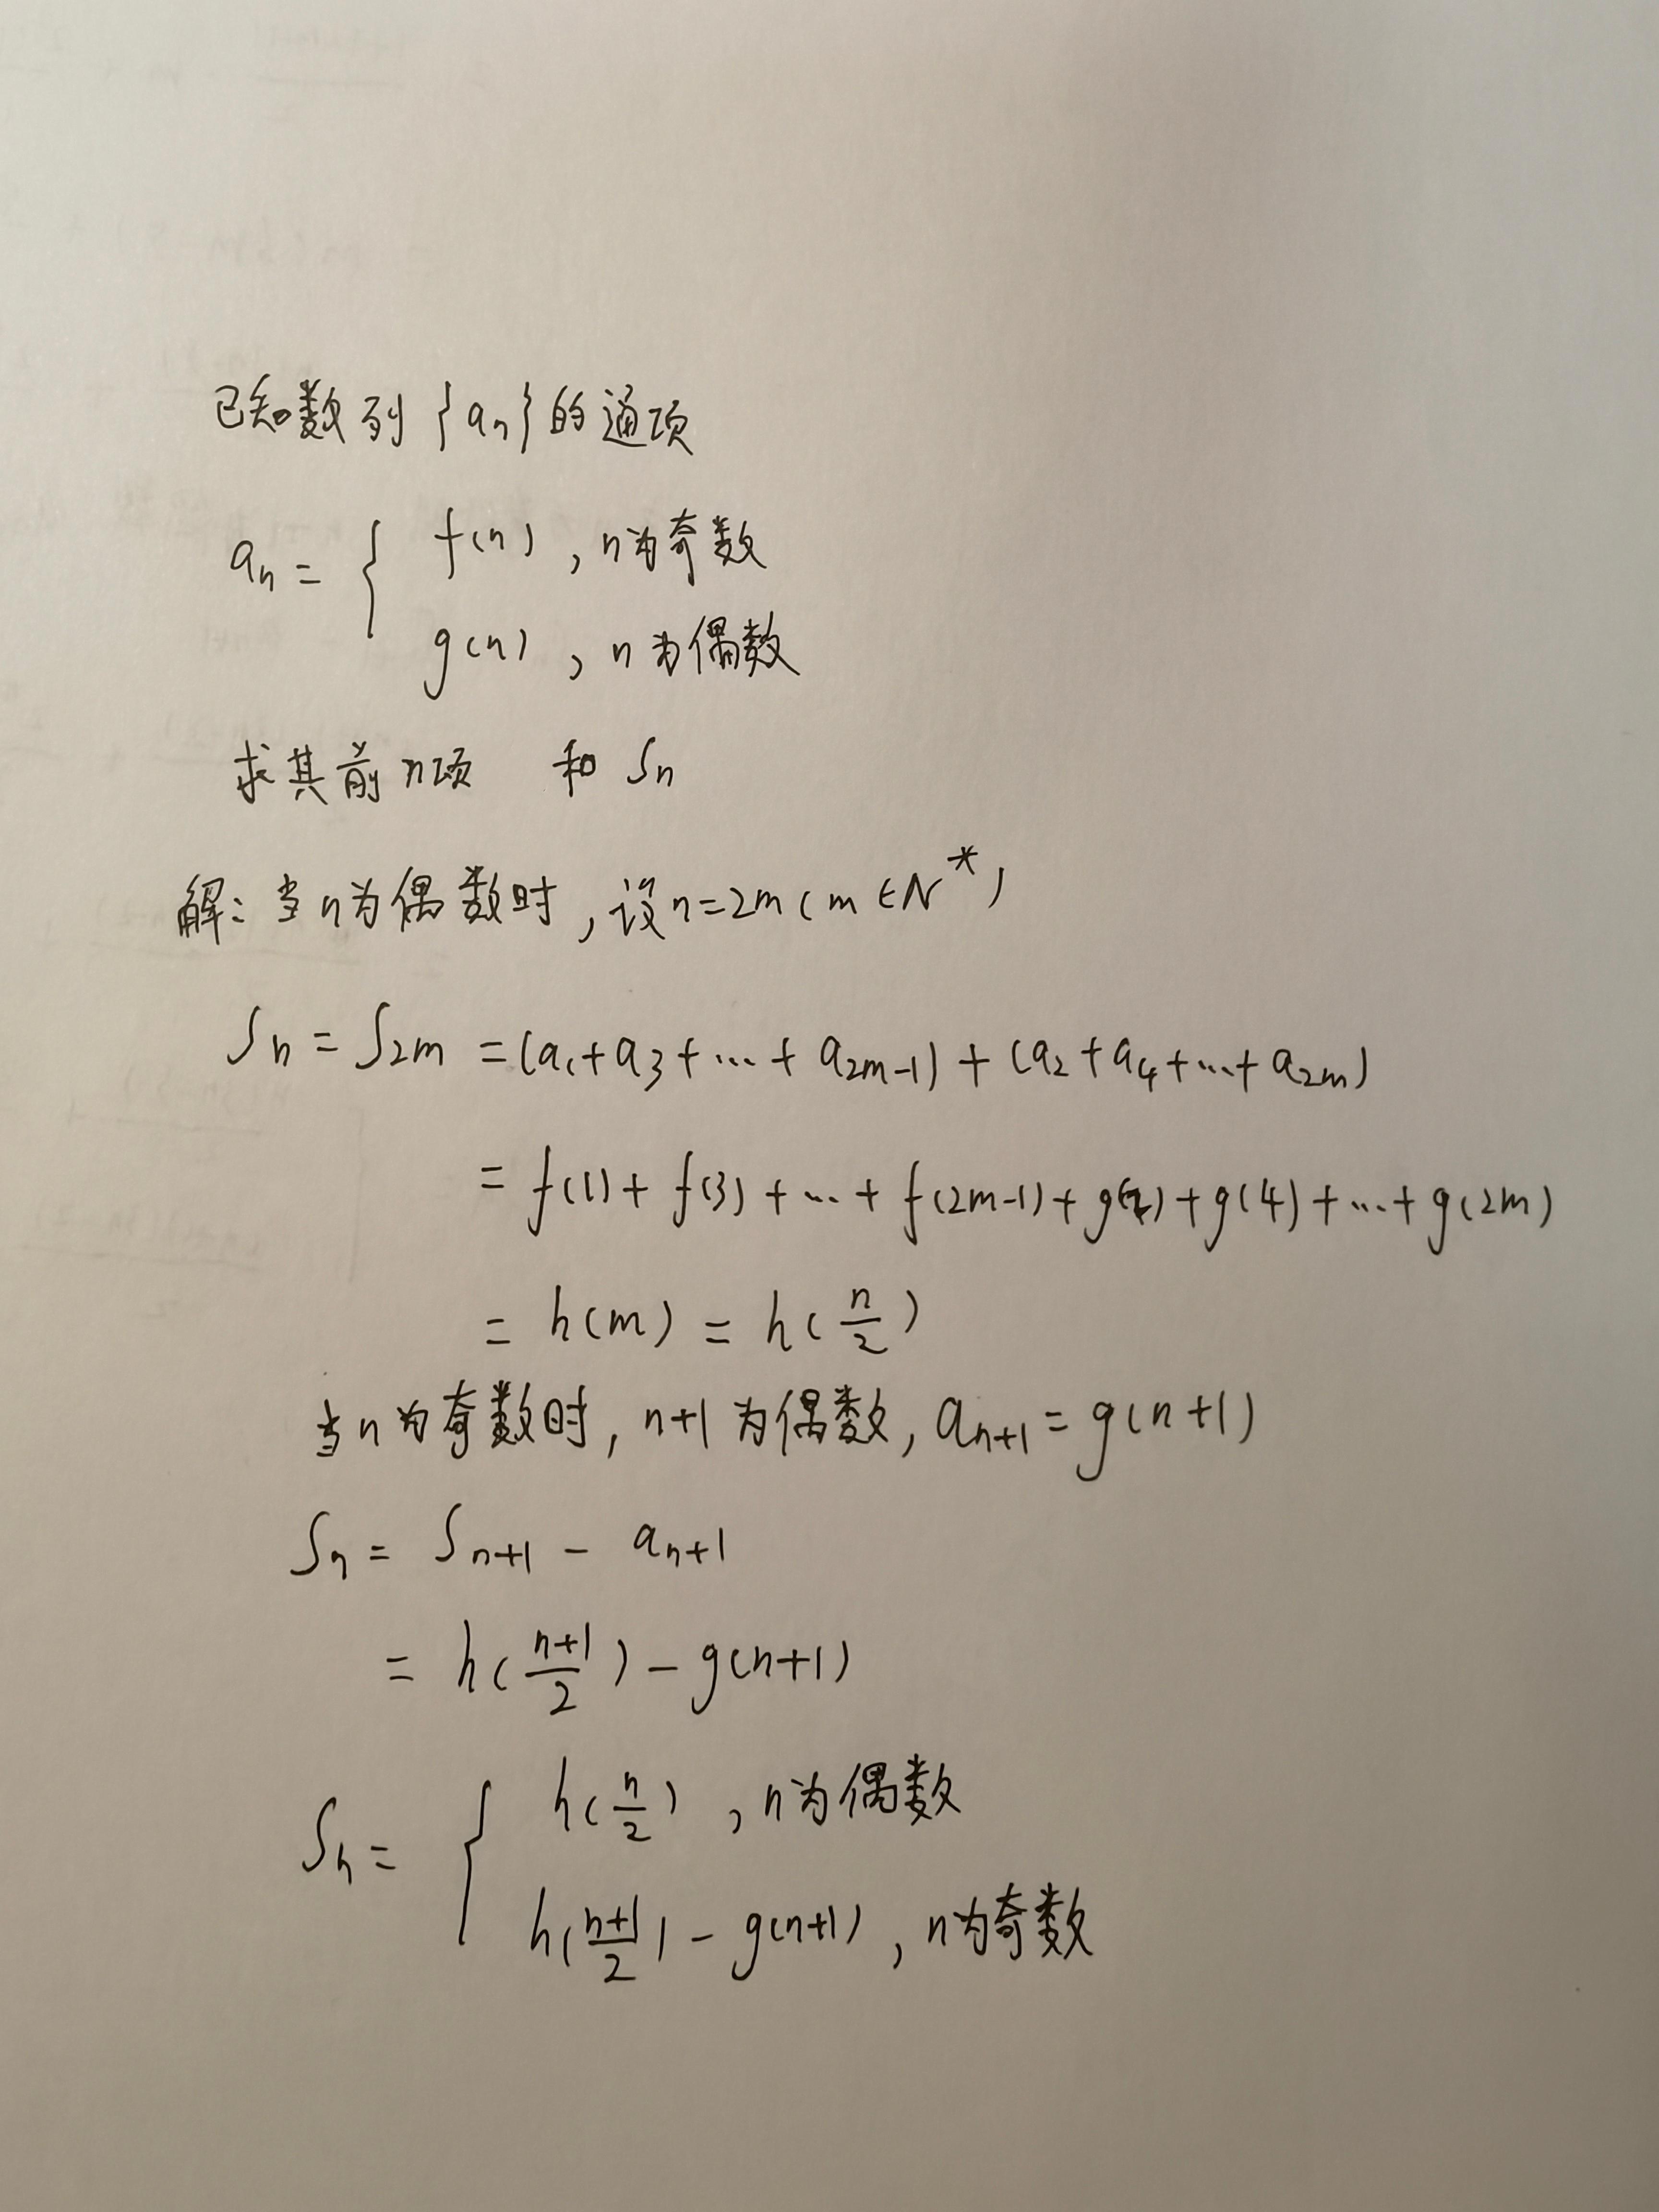 已知数列{aₙ}的通项
aₙ = { f(n) , n为奇数
g(n) , n为偶数
求其前n项 和 Sₙ
解: 当n为偶数时, 设n=2m(m∈N*)
Sₙ = S₂ₘ = (a₁+a₃+…+a₂ₘ₋₁)+(a₂+a₄+…+a₂ₘ)
= f(1)+f(3)+…+f(2m-1)+g(2)+g(4)+…+g(2m)
= h(m) = h(n/2)
当n为奇数时, n+1为偶数, aₙ₊₁=g(n+1)
Sₙ = Sₙ₊₁ - aₙ₊₁
= h((n+1)/2) - g(n+1)
Sₙ = { h(n/2) , n为偶数
h((n+1)/2) - g(n+1) , n为奇数